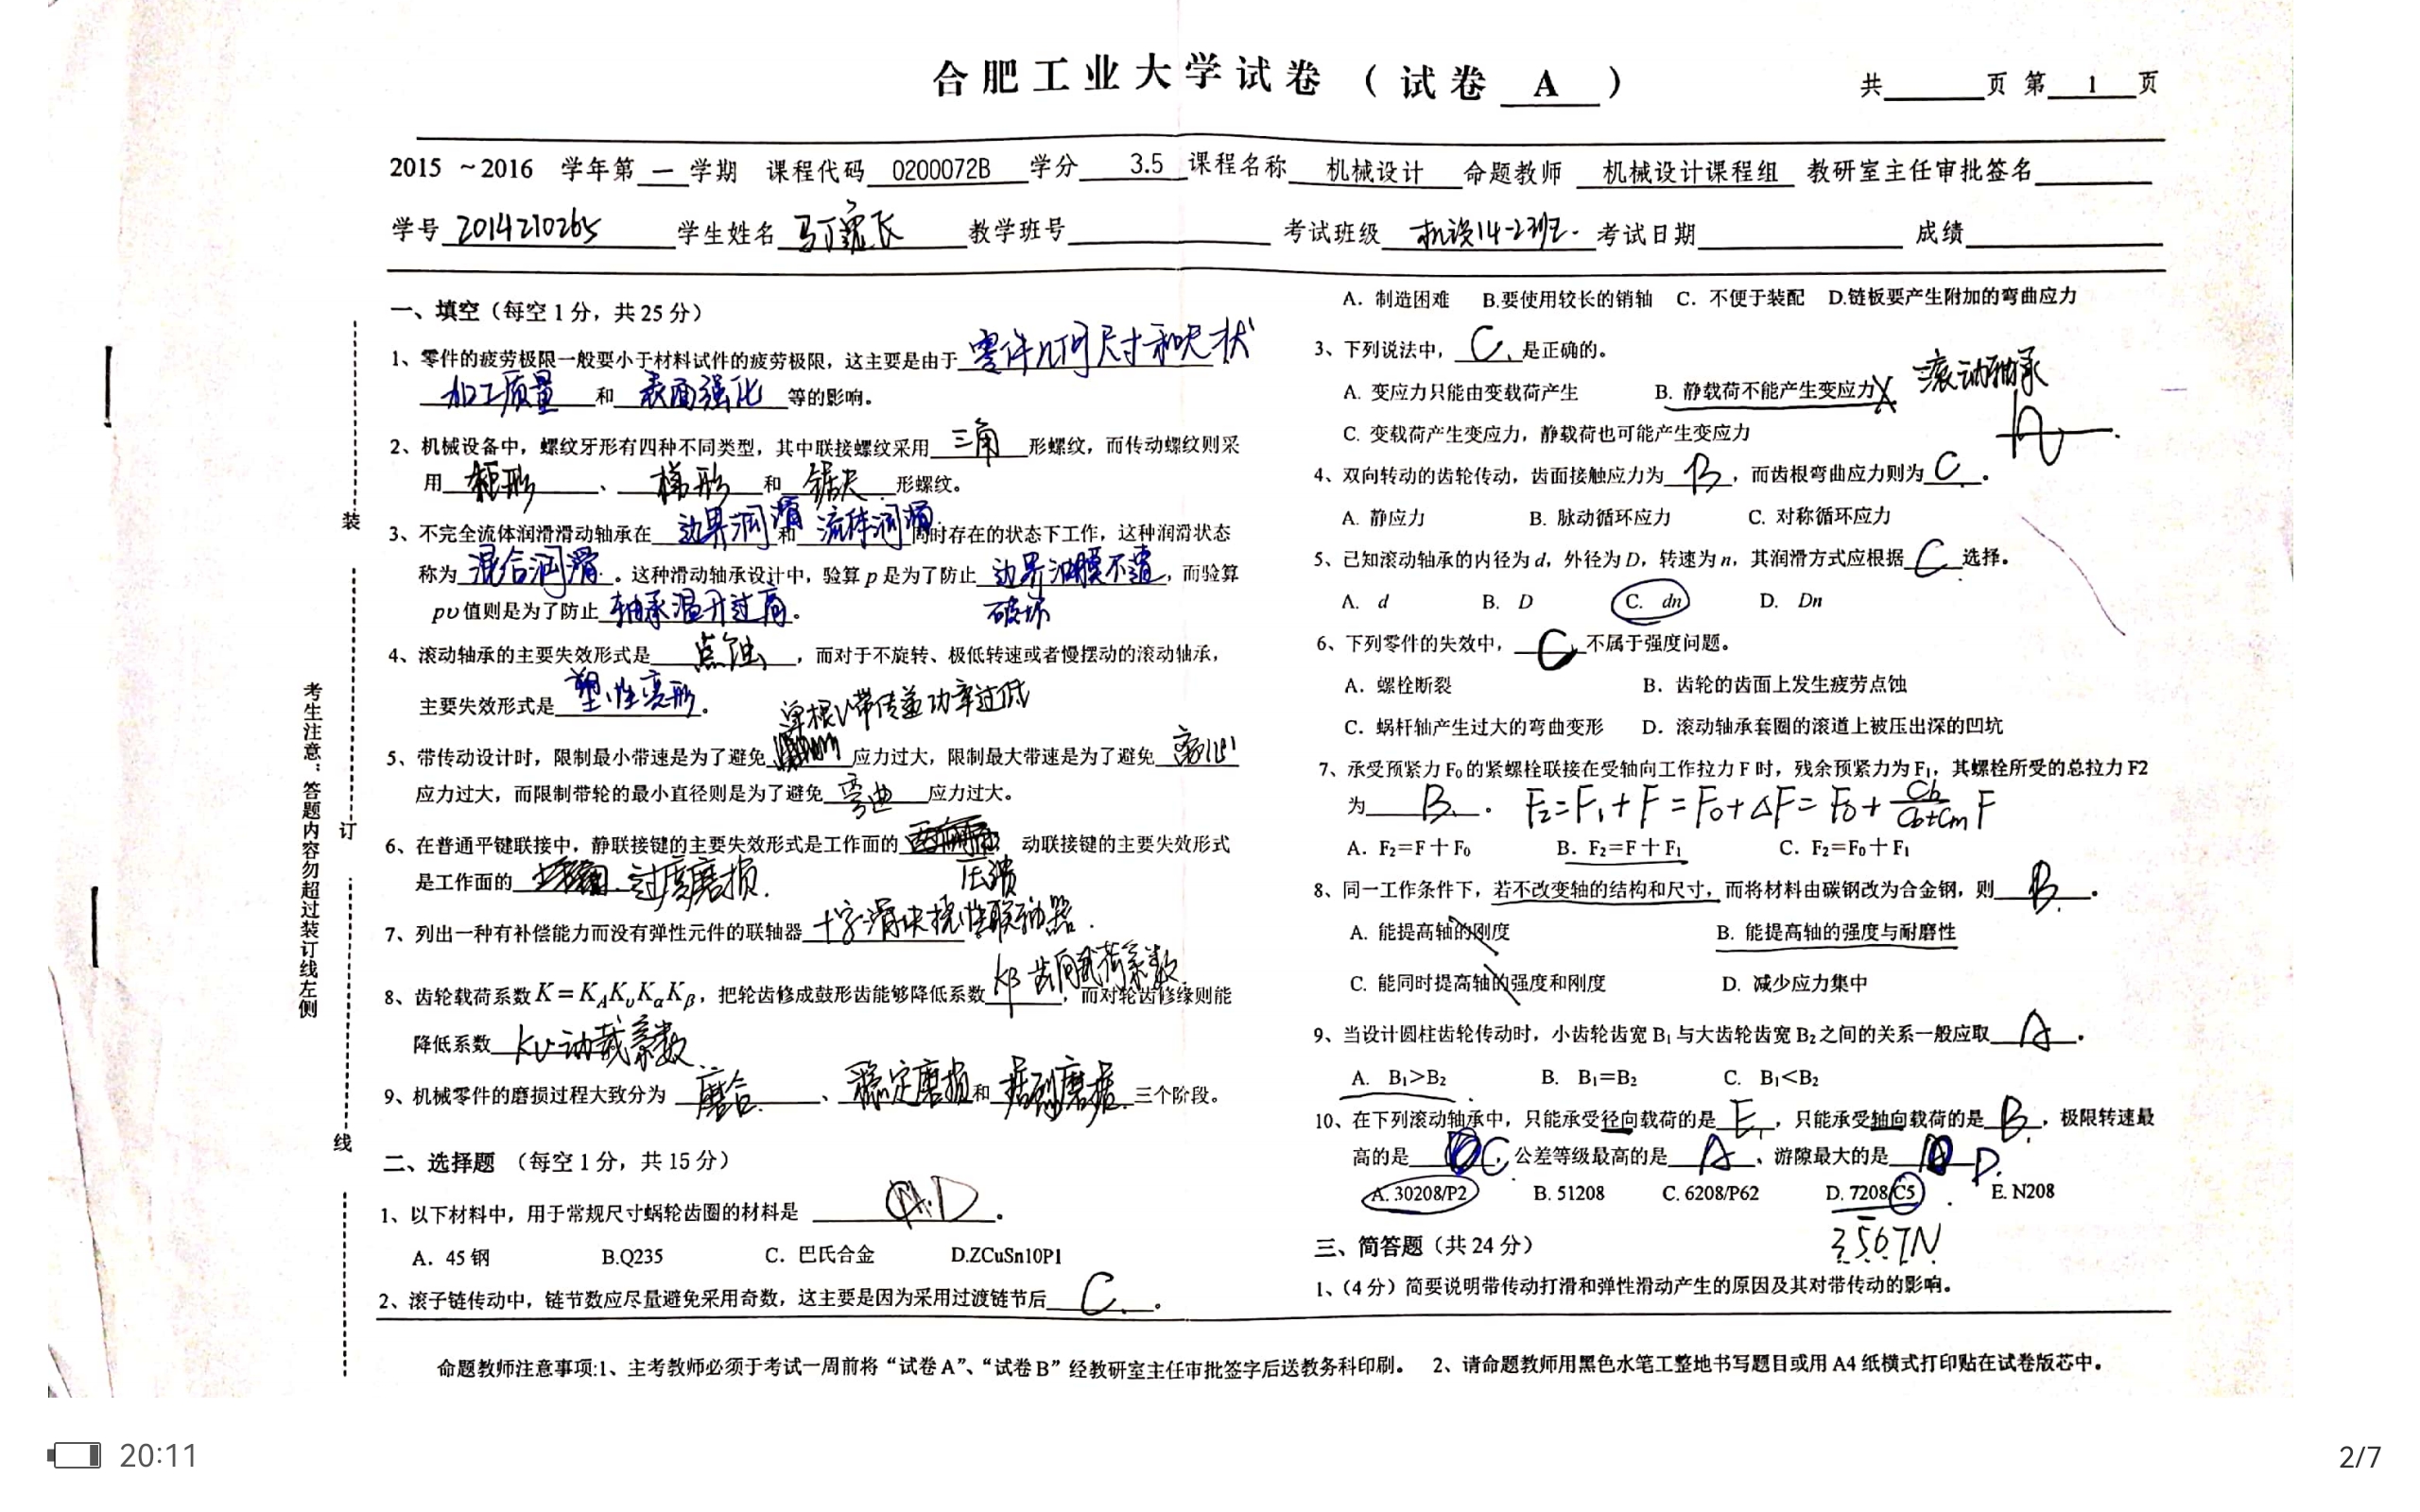 合肥工业大学试卷（试卷 A ）
共 页 第 1 页
2015 ~2016 学年第 一 学期 课程代码 0200072B 学分 3.5 课程名称 机械设计 命题教师 机械设计课程组 教研室主任审批签名
学号 2014210265 学生姓名 教学班号 考试班级 机设14-2班. 考试日期 成绩
一、填空（每空 1 分，共 25 分）
1、零件的疲劳极限一般要小于材料试件的疲劳极限，这主要是由于 零件几何尺寸和尺状 、
加工质量 和 表面强化 等的影响。
2、机械设备中，螺纹牙形有四种不同类型，其中联接螺纹采用 三角 形螺纹，而传动螺纹则采
用 矩形 、 梯形 和 锯尺 形螺纹。
3、不完全流体润滑滑动轴承在 边界润滑 和 流体润滑 同时存在的状态下工作，这种润滑状态
称为 混合润滑 。这种滑动轴承设计中，验算 p 是为了防止 边界油膜不遭 ，而验算
破坏
pυ 值则是为了防止 轴承温升过高 。
4、滚动轴承的主要失效形式是 点蚀 ，而对于不旋转、极低转速或者慢摆动的滚动轴承，
主要失效形式是 塑性变形 。
单根V带传递功率过低
5、带传动设计时，限制最小带速是为了避免 应力过大，限制最大带速是为了避免 离心
应力过大，而限制带轮的最小直径则是为了避免 弯曲 应力过大。
6、在普通平键联接中，静联接键的主要失效形式是工作面的 动联接键的主要失效形式
压溃
是工作面的 过度磨损.
7、列出一种有补偿能力而没有弹性元件的联轴器 十字滑块挠性联轴器.
8、齿轮载荷系数 K=KAKυKαKβ，把轮齿修成鼓形齿能够降低系数 Kβ 齿间载荷系数 ，而对轮齿修缘则能
降低系数 Kυ动载系数.
9、机械零件的磨损过程大致分为 磨合 、 稳定磨损 和 剧烈磨损 三个阶段。
二、选择题 （每空 1 分，共 15 分）
1、以下材料中，用于常规尺寸蜗轮齿圈的材料是 D 。
A．45 钢 B.Q235 C．巴氏合金 D.ZCuSn10P1
2、滚子链传动中，链节数应尽量避免采用奇数，这主要是因为采用过渡链节后 C. 。
A．制造困难 B.要使用较长的销轴 C．不便于装配 D.链板要产生附加的弯曲应力
3、下列说法中， C. 是正确的。
滚动轴承
A. 变应力只能由变载荷产生 B. 静载荷不能产生变应力
C. 变载荷产生变应力，静载荷也可能产生变应力
4、双向转动的齿轮传动，齿面接触应力为 B ，而齿根弯曲应力则为 C 。
A. 静应力 B. 脉动循环应力 C. 对称循环应力
5、已知滚动轴承的内径为 d，外径为 D，转速为 n，其润滑方式应根据 C 选择。
A. d B. D C. dn D. Dn
6、下列零件的失效中， C 不属于强度问题。
A．螺栓断裂 B．齿轮的齿面上发生疲劳点蚀
C．蜗杆轴产生过大的弯曲变形 D．滚动轴承套圈的滚道上被压出深的凹坑
7、承受预紧力 F0 的紧螺栓联接在受轴向工作拉力 F 时，残余预紧力为 F1，其螺栓所受的总拉力 F2
为 B. 。 F2=F1+F=F0+ΔF=F0+Cb/(Cb+Cm)F
A．F2=F＋F0 B．F2=F＋F1 C．F2=F0＋F1
8、同一工作条件下，若不改变轴的结构和尺寸，而将材料由碳钢改为合金钢，则 B. 。
A. 能提高轴的刚度 B. 能提高轴的强度与耐磨性
C. 能同时提高轴的强度和刚度 D. 减少应力集中
9、当设计圆柱齿轮传动时，小齿轮齿宽 B1 与大齿轮齿宽 B2 之间的关系一般应取 A 。
A. B1>B2 B. B1=B2 C. B1<B2
10、在下列滚动轴承中，只能承受径向载荷的是 E ，只能承受轴向载荷的是 B. ，极限转速最
高的是 C ，公差等级最高的是 A 、游隙最大的是 D.
A. 30208/P2 B. 51208 C. 6208/P62 D. 7208/C5 E. N208
3567N
三、简答题（共 24 分）
1、（4 分）简要说明带传动打滑和弹性滑动产生的原因及其对带传动的影响。
命题教师注意事项:1、主考教师必须于考试一周前将“试卷 A”、“试卷 B”经教研室主任审批签字后送教务科印刷。 2、请命题教师用黑色水笔工整地书写题目或用 A4 纸横式打印贴在试卷版芯中。
考生注意：答题内容勿超过装订线左侧
装
订
线
20:11
2/7